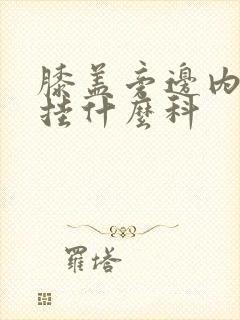 膝盖旁邊内
挂什麼科
羅塔